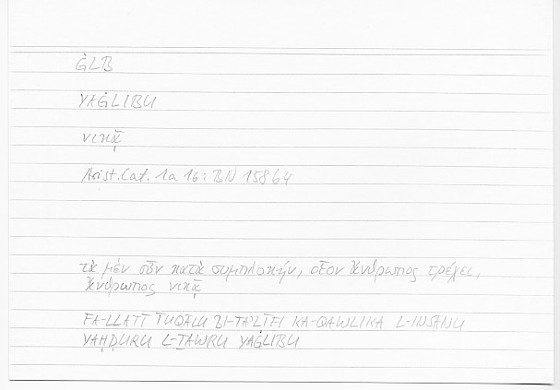 ĠLB
YAĠLIBU
νικᾷ
Arist. Cat. 1a 16: BN 158 b4
τὰ μὲν οὖν κατὰ συμπλοκήν, οἷον ἄνθρωπος τρέχει,
ἄνθρωπος νικᾷ
FA-LLATĪ TUQĀLU BI-TA'LĪFI KA-QAWLIKA L-INSĀNU
YAḤḌURU L-ṮAWRU YAĠLIBU